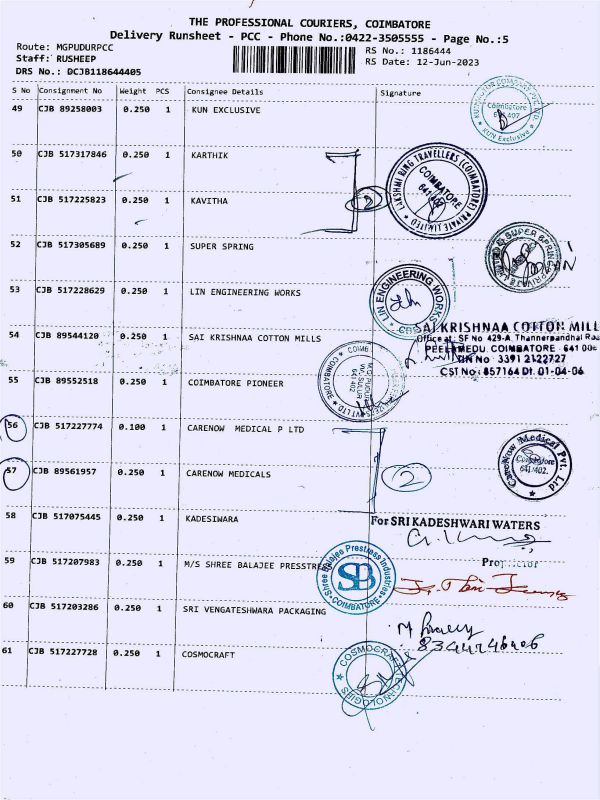 THE PROFESSIONAL COURIERS, COIMBATORE
Delivery Runsheet - PCC - Phone No.:0422-3505555 - Page No.:5
Route: MGPUDURPCC
RS No.: 1186444
Staff: RUSHEEP
RS Date: 12-Jun-2023
DRS No.: DCJB118644405
S No Consignment No Weight PCS Consignee Details Signature
49 CJB 89258003 0.250 1 KUN EXCLUSIVE
Coimbatore
641 407
KUN Exclusive
50 CJB 517317846 0.250 1 KARTHIK
LAKSHMI RING TRAVELLERS (COIMBATORE) PRIVATE LIMITED
COIMBATORE
641 402
51 CJB 517225823 0.250 1 KAVITHA
2
52 CJB 517305689 0.250 1 SUPER SPRING
SUPER SPRINGS
53 CJB 517228629 0.250 1 LIN ENGINEERING WORKS
LIN ENGINEERING WORKS
54 CJB 89544120 0.250 1 SAI KRISHNAA COTTON MILLS
SAI KRISHNAA COTTON MILL
Office at: SF No 429-A, Thannerpandhal Roa
PEELAMEDU, COIMBATORE - 641 00
TIN No 3391 2122727
CST No: 857164 Dt. 01-04-06
55 CJB 89552518 0.250 1 COIMBATORE PIONEER
641 402
56 CJB 517227774 0.100 1 CARENOW MEDICAL P LTD
CareNow Medical Pvt. Ltd
Coimbatore
641 402.
57 CJB 89561957 0.250 1 CARENOW MEDICALS
2
58 CJB 517075445 0.250 1 KADESIWARA
For SRI KADESHWARI WATERS
59 CJB 517207983 0.250 1 M/S SHREE BALAJEE PRESSTRES
Shree Balajee Prestress Industries
SB
COIMBATORE
60 CJB 517203286 0.250 1 SRI VENGATESHWARA PACKAGING
61 CJB 517227728 0.250 1 COSMOCRAFT
COSMOCRAFT TECHNOLOGIES